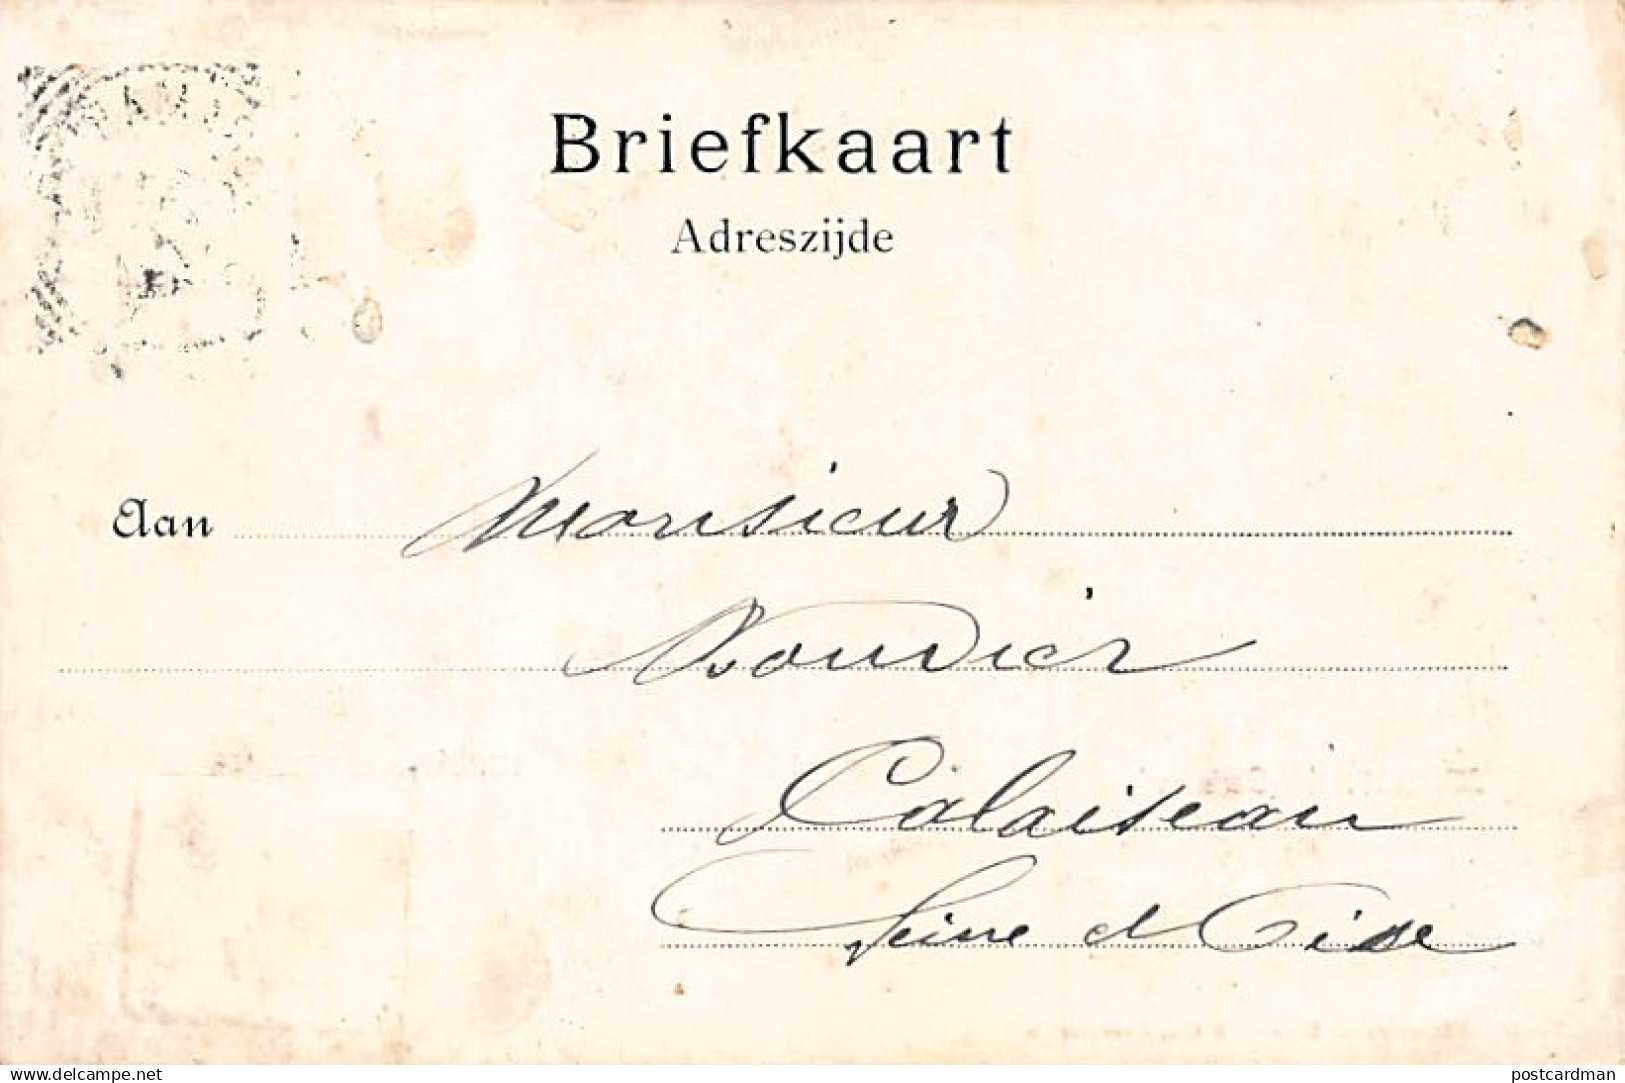 Briefkaart
Adreszijde
Aan Monsieur
Bouvier
Calaiseau
Seine et Oise
www.delcampe.net
postcardman